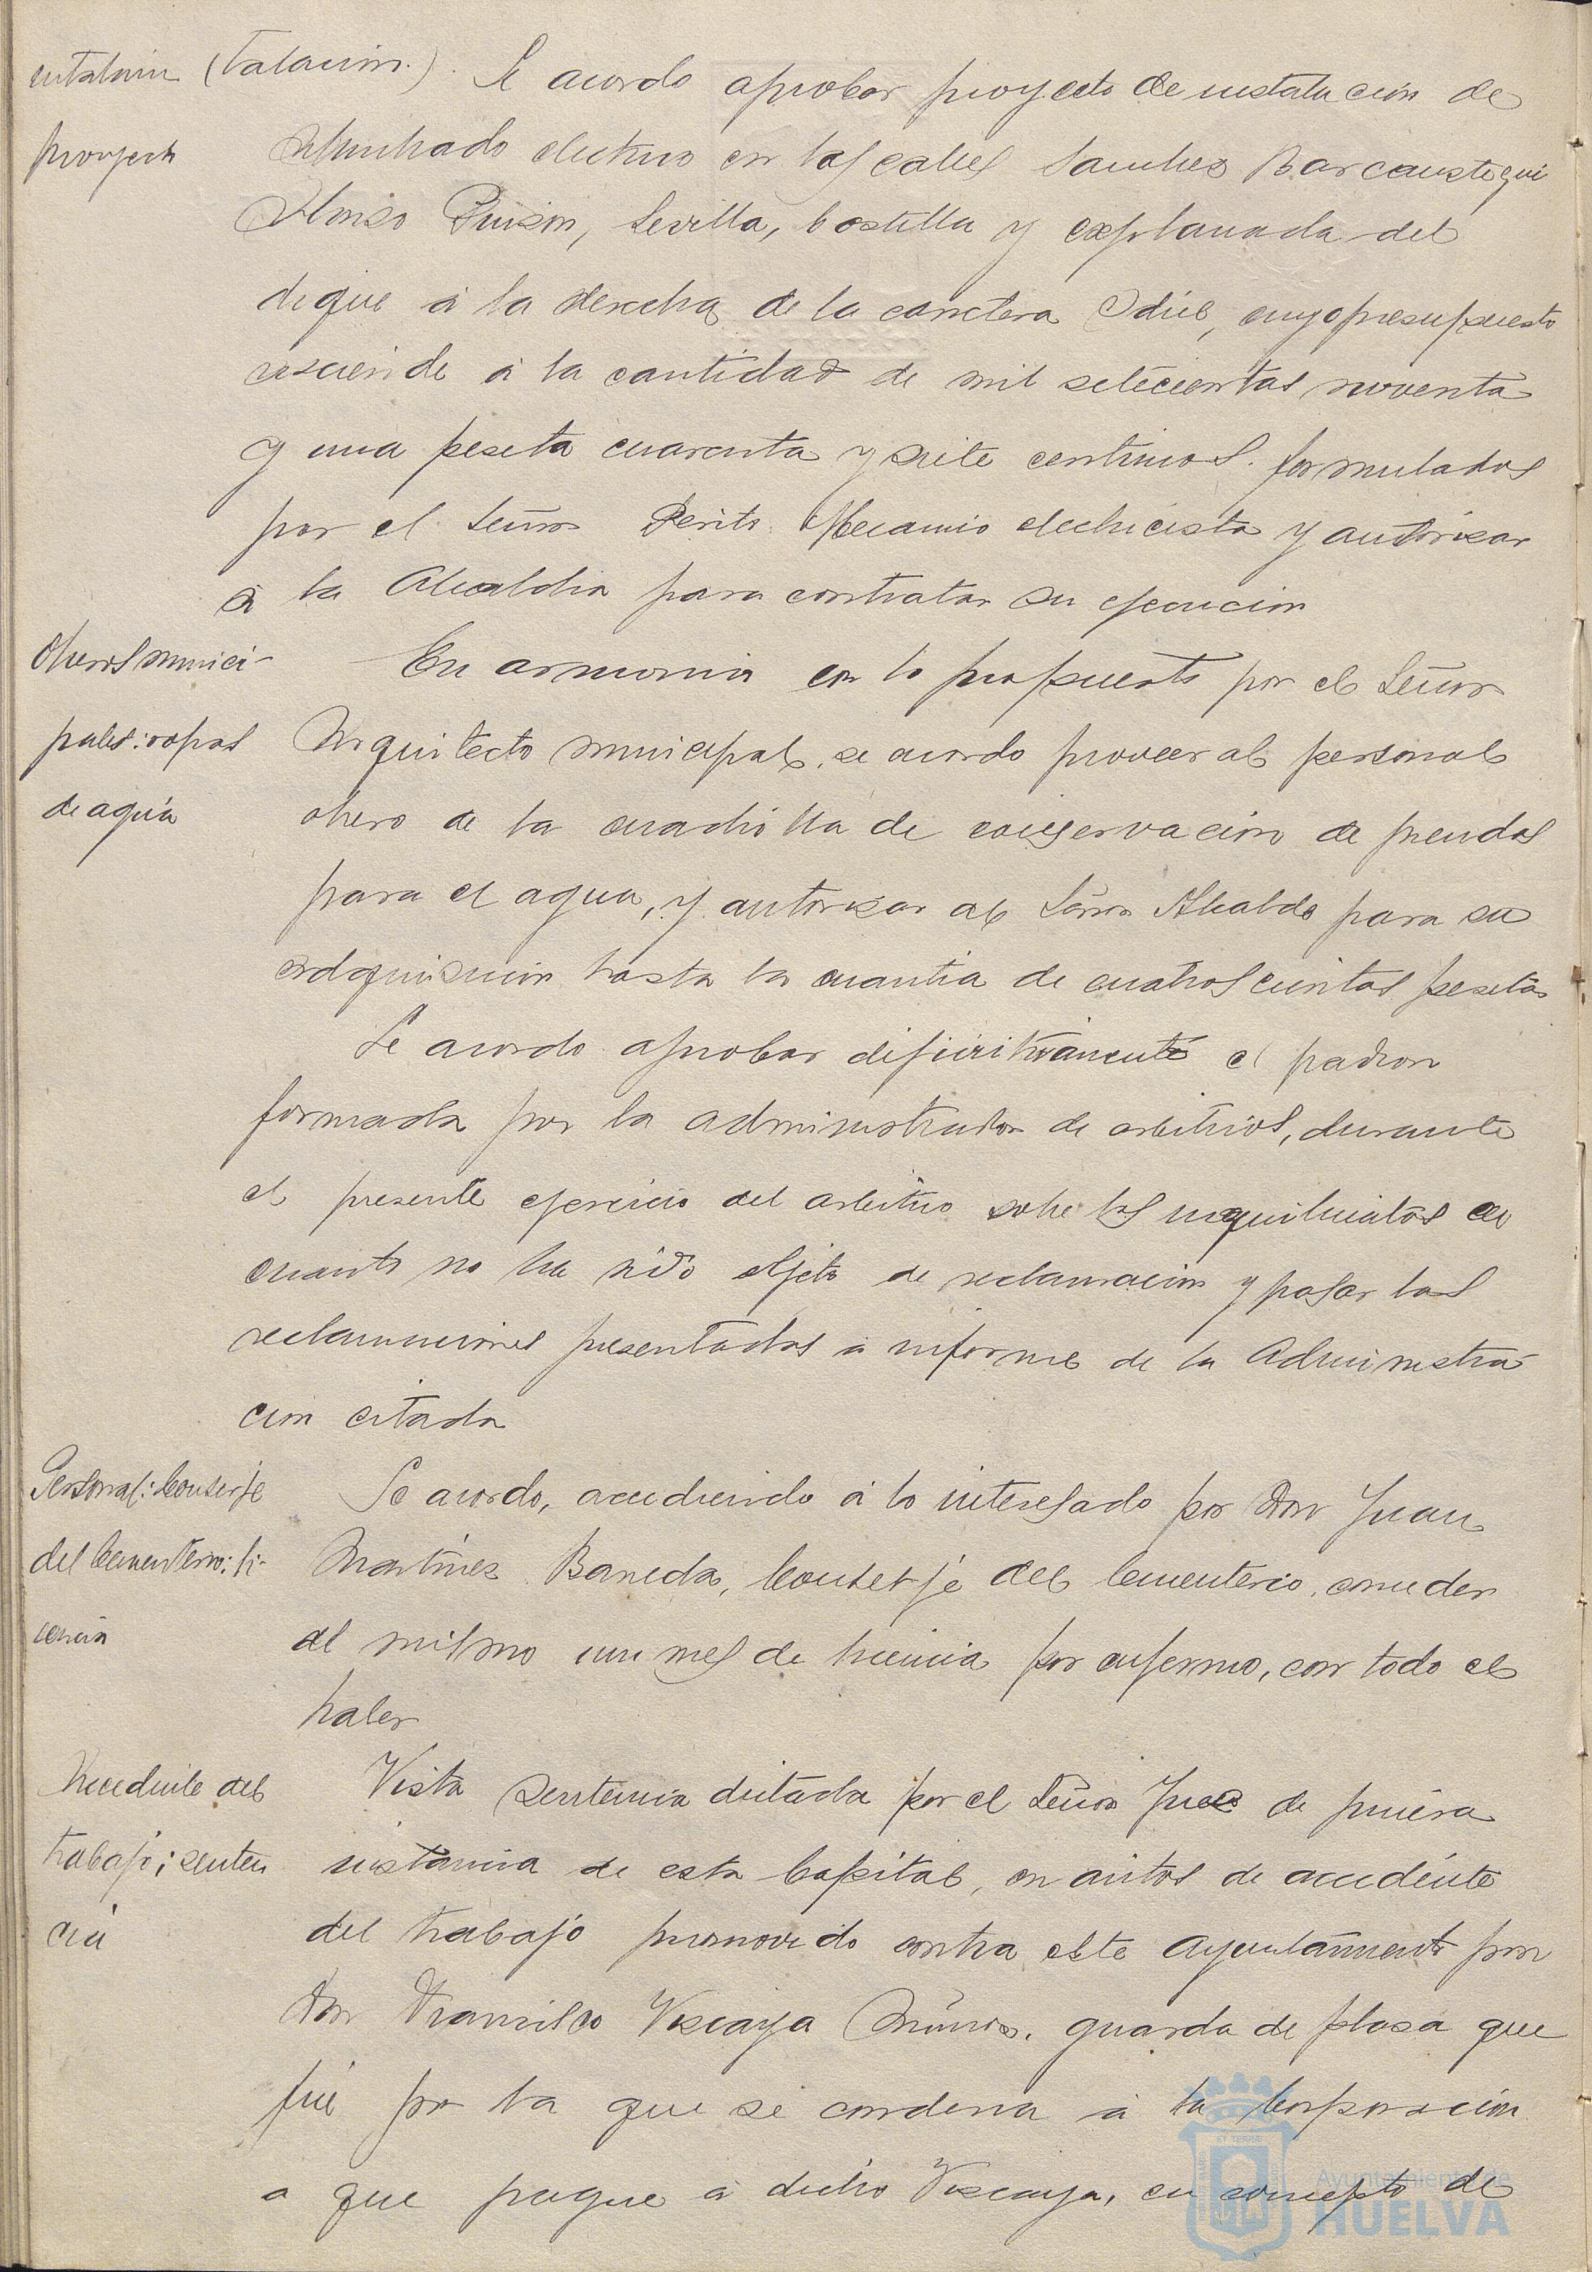 (talación). Se acordo aprobar proyecto de instalación de
proyecto
alumbrado electrico en las calles Sanchez Barcaiztegui
Alonso Pinzon, Sevilla, Castilla y explanada del
dique á la derecha de la carretera Odiel, cuyo presupuesto
asciende á la cantidad de mil setecientas noventa
y una peseta cuarenta y siete centimos. formulados
por el Señor Perito Mecanico electricista y autorizar
á la Alcaldia para contratar su ejecucion
Obreros munici-
En armonia con lo propuesto por el Señor
pales: ropas
Arquitecto municipal, se acordo proveer al personal
de agua
obrero de la cuadrilla de conservacion de prendas
para el agua, y autorizar al Señor Alcalde para su
adquisicion hasta la cuantia de cuatroscientas pesetas
Se acordo aprobar difinitivamente el padron
formada por la administrador de arbitrios, durante
el presente ejercicio del arbitrio sobre los inquilinatos en
cuanto no ha sido objeto de reclamacion y pasar las
reclamaciones presentadas á informe de la Administra-
cion citada
Personal: Conserje
Se acordo, accediendo á lo interesado por Don Juan
del Cementerio: li-
Martinez Baneda, Conserje del Cementerio, conceder
cencia
al mismo un mes de licencia por enfermo, con todo el
haber
Accidente del
Vista sentencia dictada por el Señor Juez de primera
trabajo; senten
instancia de esta Capital, en autos de accidente
cia
del trabajo promovido contra este Ayuntamiento por
Don Francisco Viscaya Muñoz, guarda de plaza que
fué por la que se condena á la Corporación
a que pague á dicho Viscaya, en concepto de
Ayuntamiento de
HUELVA